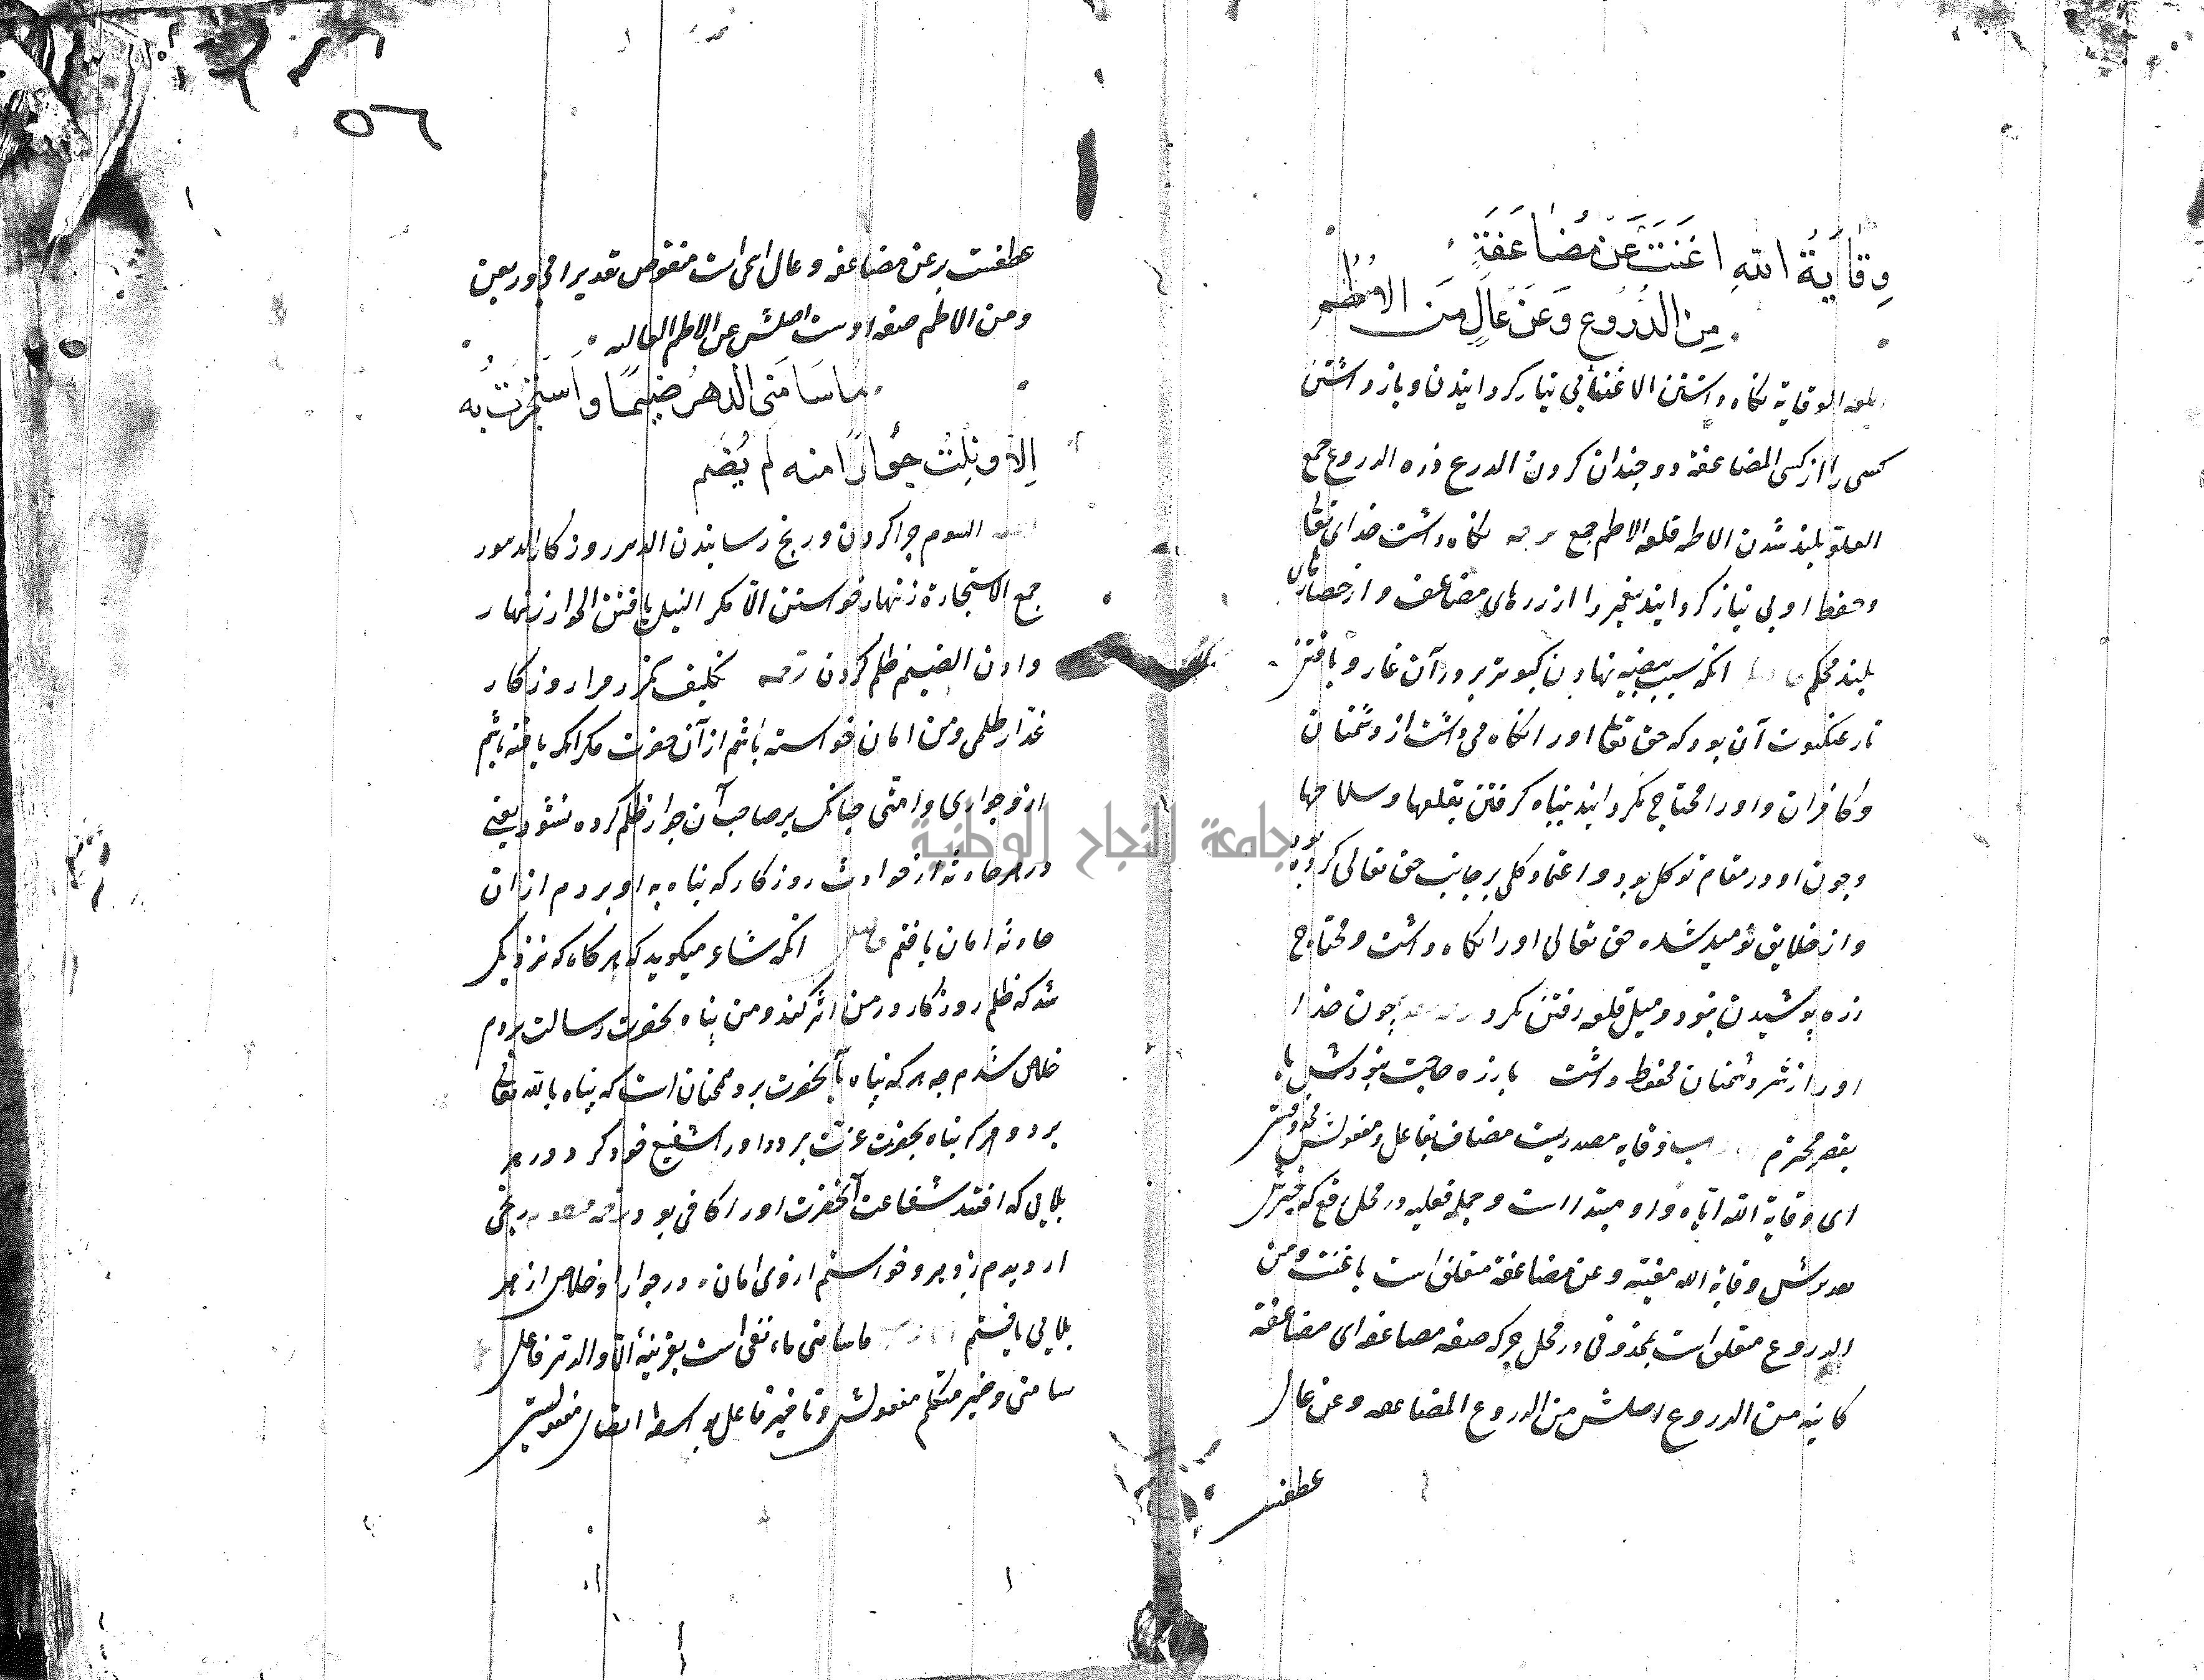 وِقَايَةُ اللهِ اَغْنَتْ عَنْ مُضَاعَفَةٍ
مِنَ الدُّرُوعِ وَعَنْ عَالٍ مِنَ الاُطُم
الوقاية نكاه داشتن الاغناء بی نیاز کردانیدن و باز داشتن
کسی را از کسی المضاعفة دو جندان کردن الدرع زره الدروع جمع
العلو بلند شدن الاطم قلعه الاطم جمع نكاه داشت خدای تعالی
و حفظ او بی نیاز کردانید پیغمبر را از زرههای مضاعف و از حصارهای
بلند محکم انكه سبب بیضه نهادن کبوتر بر در آن غار و بافتن
تار عنکبوت آن بود که حق تعالی او را نکاه می داشت از دشمنان
و کافران و او را محتاج نکردانید بپناه کرفتن بقلعها و سلاحها
و جون او در مقام توکل بود و اعتماد کلی بر جانب حق تعالی کرده بود
و از خلایق نومید شده حق تعالی او را نکاه داشت و محتاج
زره پوشیدن نبود و میل قلعه رفتن نکرد جون خدا
او را از شر دشمنان محفوظ داشت با زره حاجت نبودش با
بقصر محترم وقایه مصدریست مضاف بفاعل و مفعولش محذوفست
ای وقایة الله ایاه و او مبتدا است و جمله فعلیه در محل رفع که خبرش
وقایة الله مغنیة و عن مضاعفة متعلق است باغنت و من
الدروع متعلق است بمحذوفی در محل جر که صفه مضاعفه ای مضاعفة
کاینه من الدروع اصلش من الدروع المضاعفه و عن عال
عطفست
٥٦
عطفست بر عن مضاعفه و عال ای است منقوص تقدیرا مجرور بعن
و من الاطم صفه اوست اصلش عن الاطم العالیه
مَا سَامَنِی الدَّهْرُ ضَیْمًا وَاسْتَجَرْتُ بِه
اِلَّا وَنِلْتُ جِوَارًا مِنه لَم یُضَمِ
السوم جرا کردن و رنج رسانیدن الدهر روزکار الدهور
جمع الاستجارة زنهار خواستن الّا مکر النیل یافتن الجوار زنهار
دادن الضیم ظلم کردن ترجمه تکلیف نکرد مرا روزکار
غدّار ظلمی و من امان خواسته باشم از آن حضرت مکر انکه یافته باشم
از و جواری و امنی جنانک بر صاحب آن جوار ظلم کرده نشود یعنی
در هر حادثه از حوادث روزکار که پناه به او بردم از ان
حادثه امان یافتم حاصل انکه شاعر میکوید که هر کاه که نزدیک
شد که ظلم روزکار در من اثر کند و من پناه بحضرت رسالت بردم
خلاص شدم جه هر که پناه بآنحضرت برد همجنان است که پناه بالله تعالی
برد و هر که پناه بحضرت عزت برد و او را شفیع خود کرد در هر
بلایی که افتد شفاعت آنحضرت او را کافی بود رنجی
ار دیدم ز دهر و خواستم از وی امان در جوار او خلاص از هر
بلایی یافتم ما سامنی ماء نفی است بقرینه الّا و الدهر فاعل
سامنی و ضمیر متکلم مفعولش و تا ضمیر فاعل بواسطه اتصال مفعولیت
جامعة النجاح الوطنية